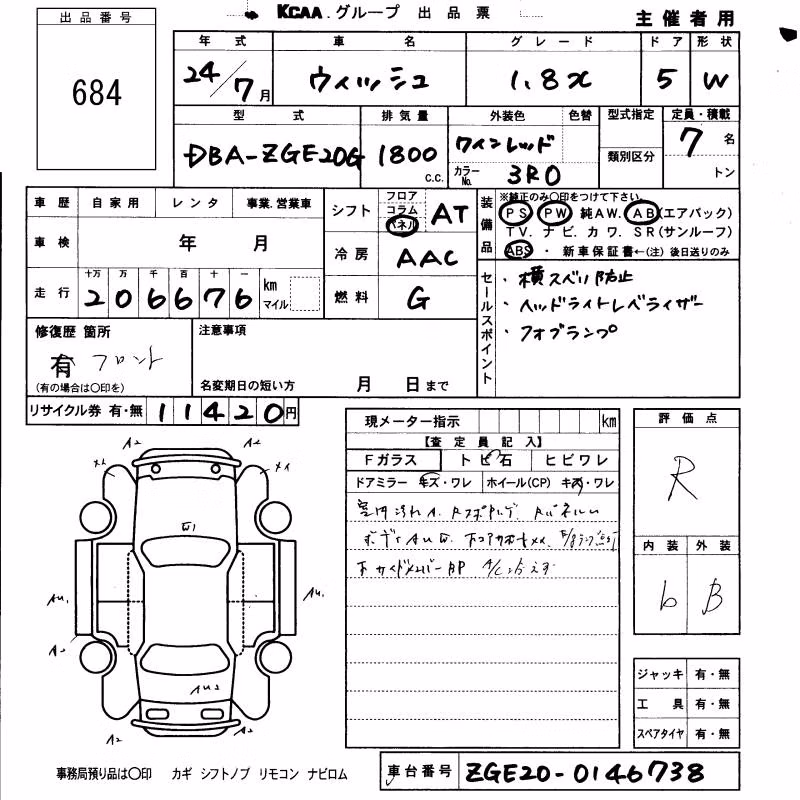 KCAA.グループ 出品票
主催者用
出品番号
684
年式 車名 グレード ドア 形状
24/7月 ウィッシュ 1.8X 5 W
型式 排気量 外装色 色替 型式指定 定員・積載
DBA-ZGE20G 1800 c.c. ワインレッド 類別区分 7名
カラーNo. 3R0 トン
車歴 自家用 レンタ 事業.営業車
車検 年 月
走行 十万 万 千 百 十 一
206676 km マイル
シフト フロア コラム パネル AT
冷房 AAC
燃料 G
装備品 ※純正のみ〇印をつけて下さい。
PS PW 純AW. AB(エアバック)
TV. ナビ. カワ. SR(サンルーフ)
ABS ・ 新車保証書←(注) 後日送りのみ
セールスポイント
・横スベリ防止
・ヘッドライトレベライザー
・フォブランプ
修復歴 箇所
有 フロント
(有の場合は〇印を)
注意事項
名変期日の短い方 月 日まで
リサイクル券 有・無 11420円
現メーター指示 km
【査定員記入】
Fガラス トビ石 ヒビワレ
ドアミラー キズ・ワレ ホイール(CP) キズ・ワレ
評価点
R
内装 外装
b B
ジャッキ 有・無
工具 有・無
スペアタイヤ 有・無
A2 A2
E1
AU1 AU1
AU2
A2 A2
事務局預り品は〇印 カギ シフトノブ リモコン ナビロム
車台番号 ZGE20-0146738